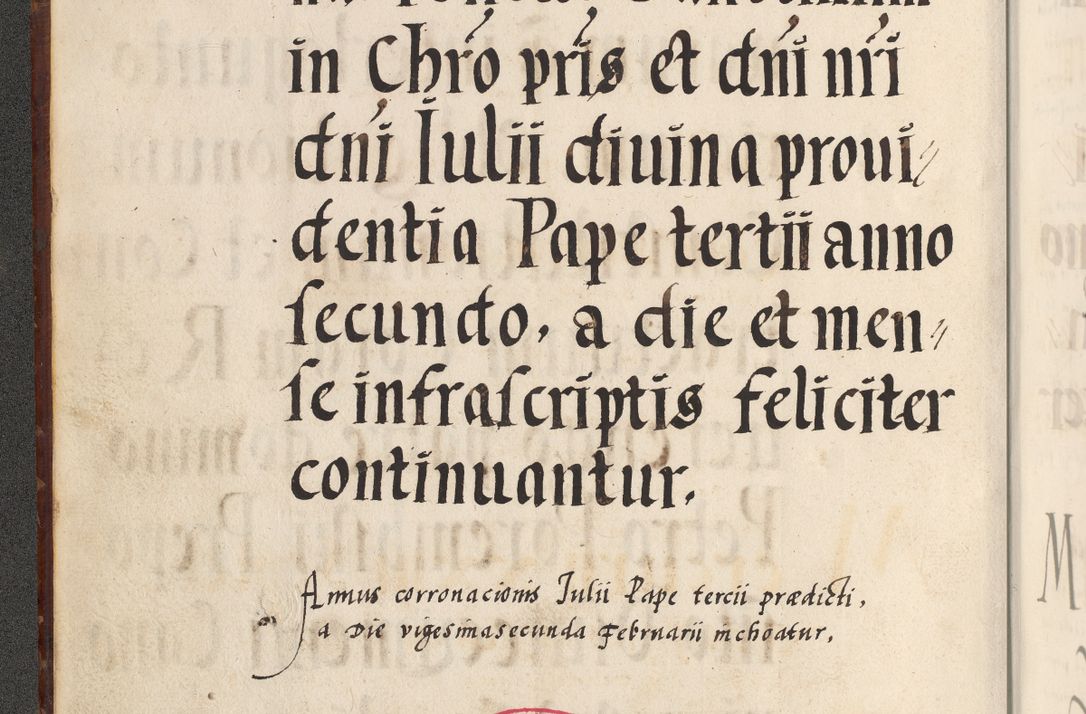 in Chro pris et dni nri
dni Iulii diuina proui⸗
dentia Pape tertii anno
ſecundo, a die et men⸗
ſe infraſcriptis feliciter
continuantur.
Annus corronacionis Iulii Pape tercii prædicti,
a Die vigesimasecunda Februarii inchoatur.